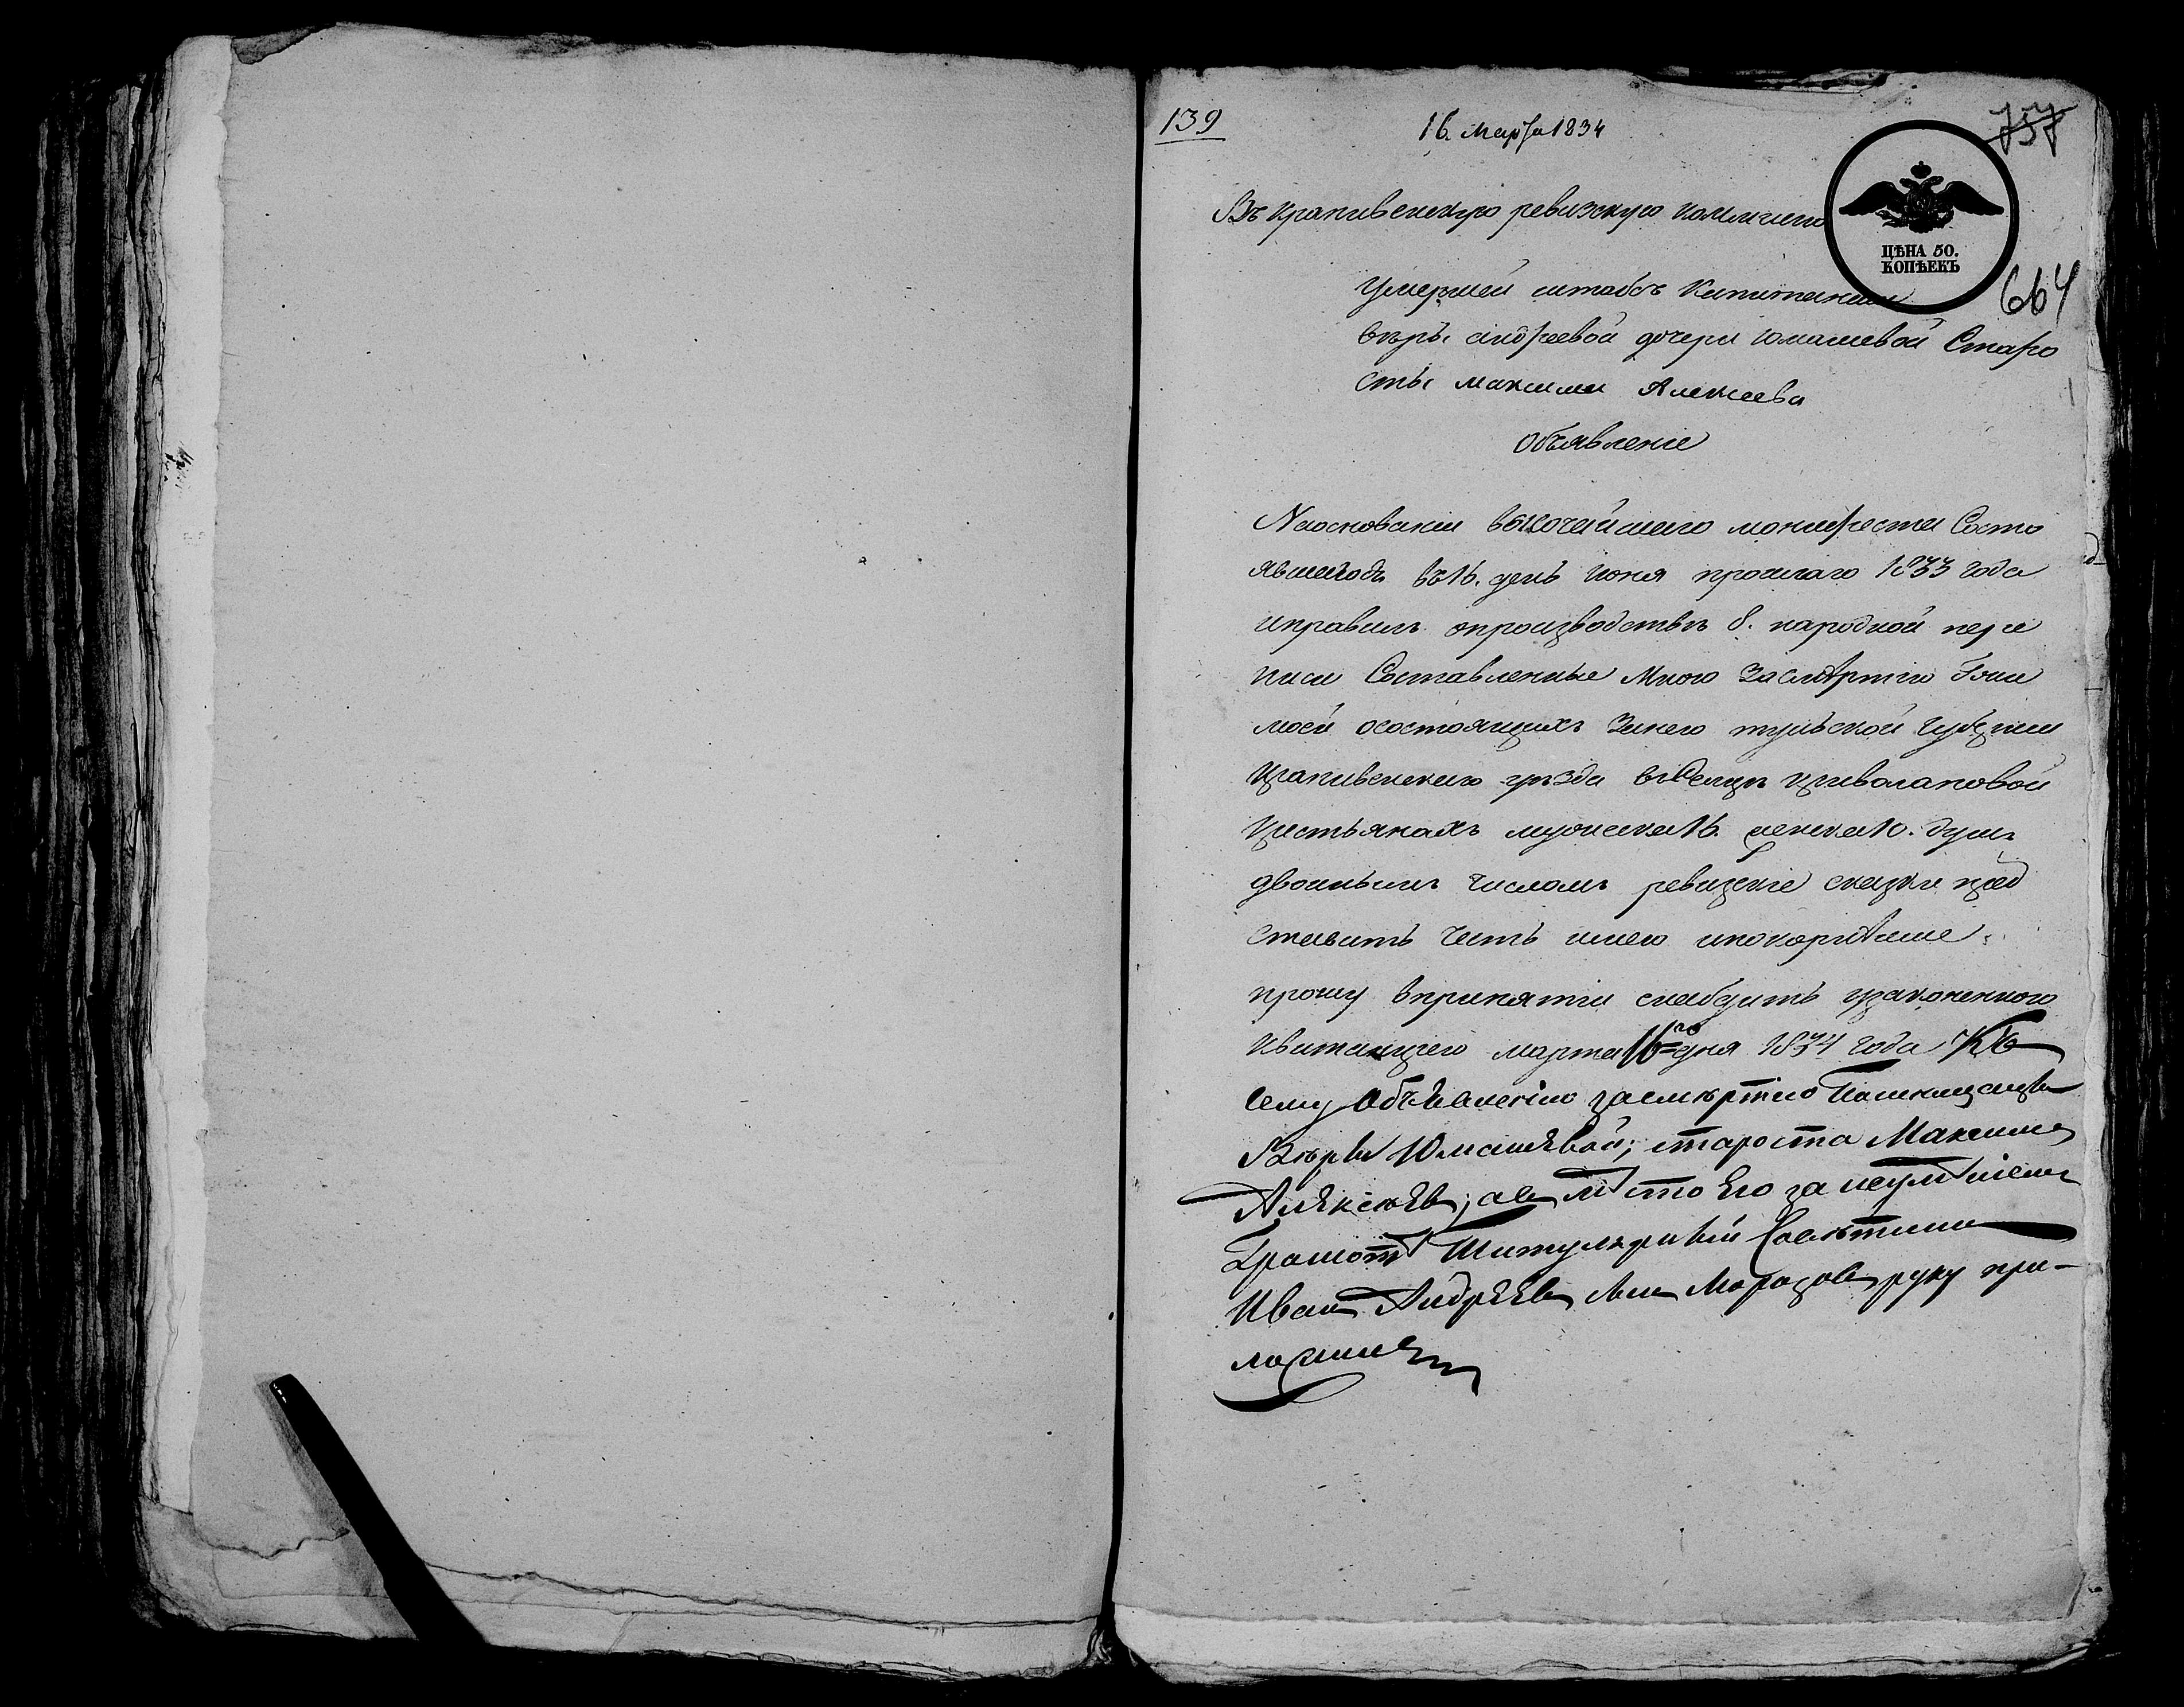 139
16. Марта 1834
757
Въ крапивенскую ревизскую коммисию
ЦѢНА 50.
КОПѢЕКЪ
664
Умершей штабсъ Капитанши
вѣры андреевой дочери Юмашевой Старо
сты максима Алексеева
Объявление
Наосновании высочайшего манифеста Состо
явшегося въ 16. день июня прошлаго 1833 года
иправилъ опроизводствѣ 8. народной пере
писи Составленные Мною Засмертию Гжи
моей осостоящихъ Занею тульской губернии
крапивенскаго уезда всельцѣ криволаповой
крестьянахъ мужска 16. женска 10. душъ
двоинымъ числомъ ревизские сказки пред
ставить честь имею ипокорнѣише
прошу впринятии снабдить узаконенною
квитанциею марта 16го дня 1834 года Къ
сему объявлению засмертию Помещицы
Веры Юмашевой; староста Максимъ
Алексеевъ; авместо Его за неумениемъ
Грамотѣ Титулярный Советникъ
Иванъ Андреевъ сынъ Морозовъ руку при-
ложилъ